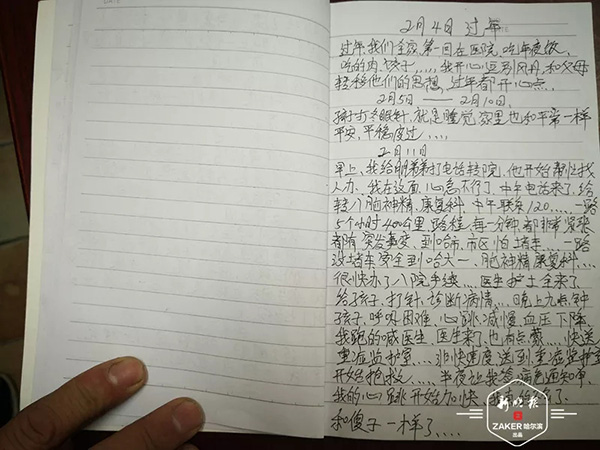 2月4日 过年
过年,我们全家第一回在医院,吃年夜饭,
吃的肉,饺子,.....,我开心逗别风丹,和父母
转移他们的思想,过年都开心点.
2月5日——2月10日.
孩子打冬眠针,就是睡觉,家里也和平常一样
平安,平稳度过....
2月11日
早上,我给朋弟弟打电话转院,他开始帮忙找
人办,我在这面,心急不行了,中午电话来了,给
转入脑神精,康复科,中午联系120....一路
5个小时400公里,路程,每一分钟都非常紧张
都有突发事变,到哈市,市区怕堵车....一路
没堵车安全到哈大一,脑神精康复科....
很快办了入院手续....医生护士全来了
给孩子,打针,诊断病情...晚上九点钟
孩子,呼吸困难,心跳减慢,血压下降
我跑的喊医生,医生来了,也有点蒙....快送
重症监护室....非快速度送到重症监护室
开始抢救....半夜让我签病危通知单,
我的心跳开始加快
和傻子一样了....
新晚报
ZAKER 哈尔滨
出品